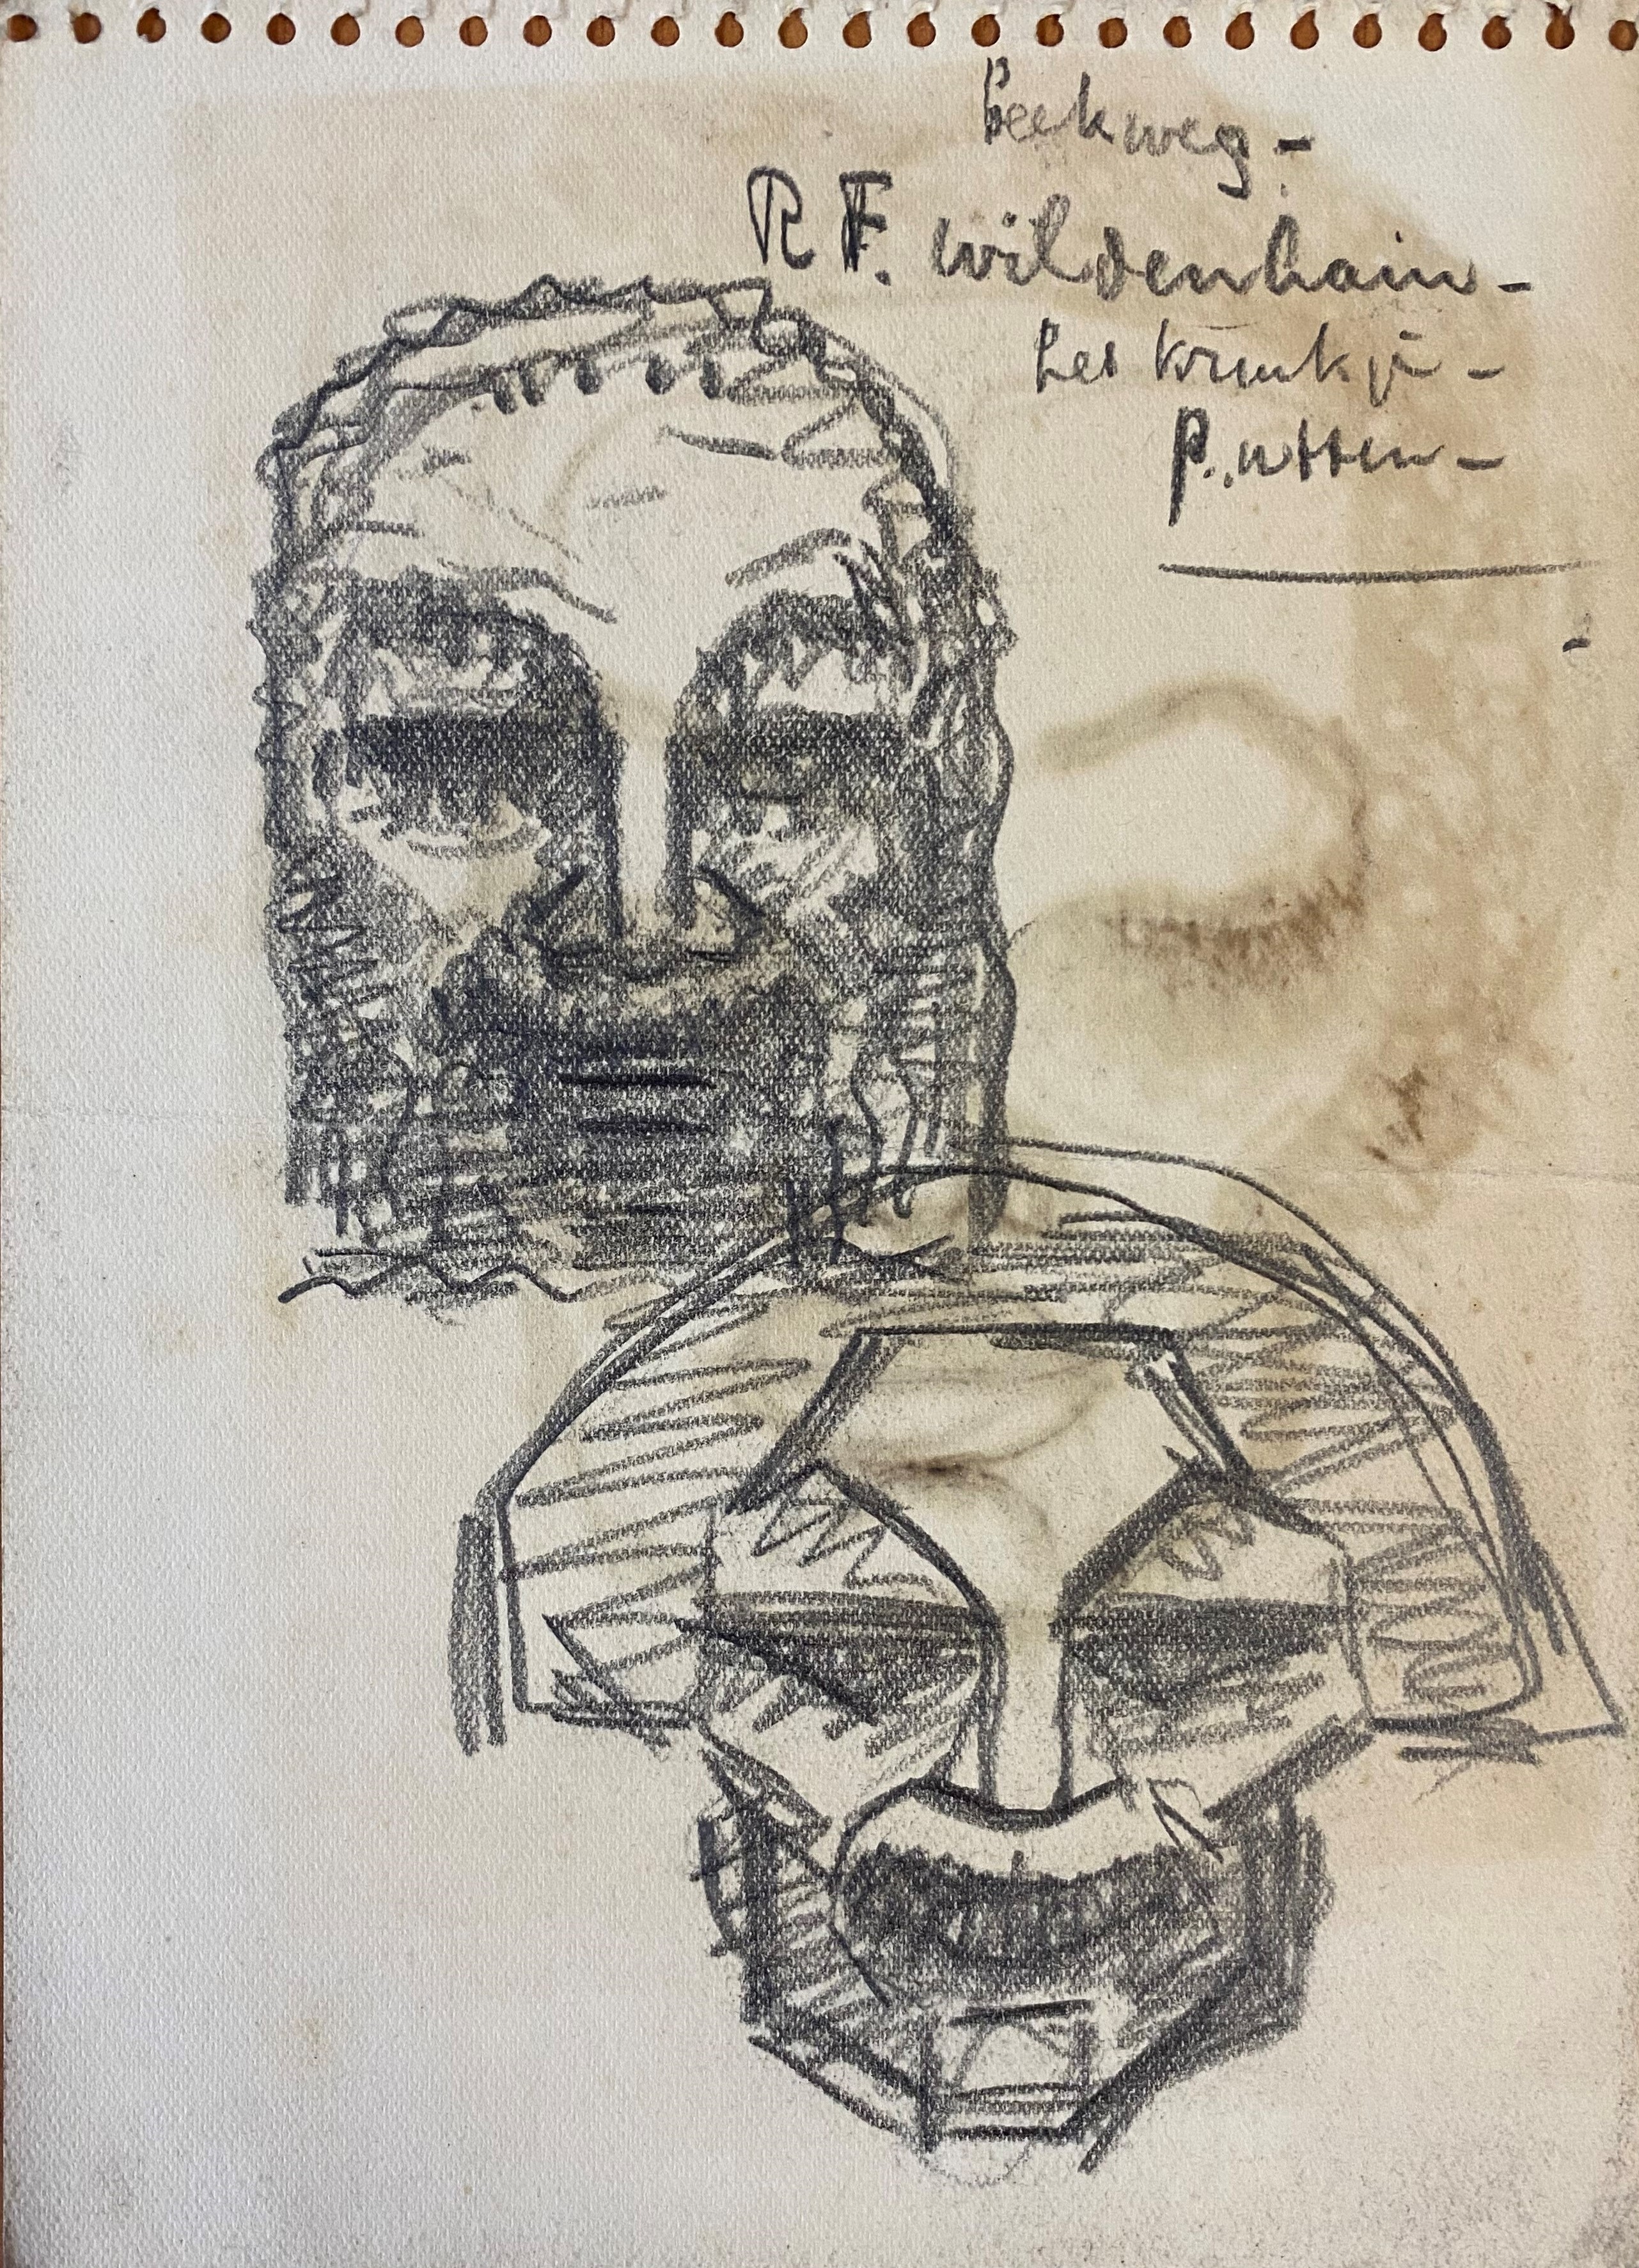 beekweg -
R F. wildenhain -
het kruikje -
Putten -